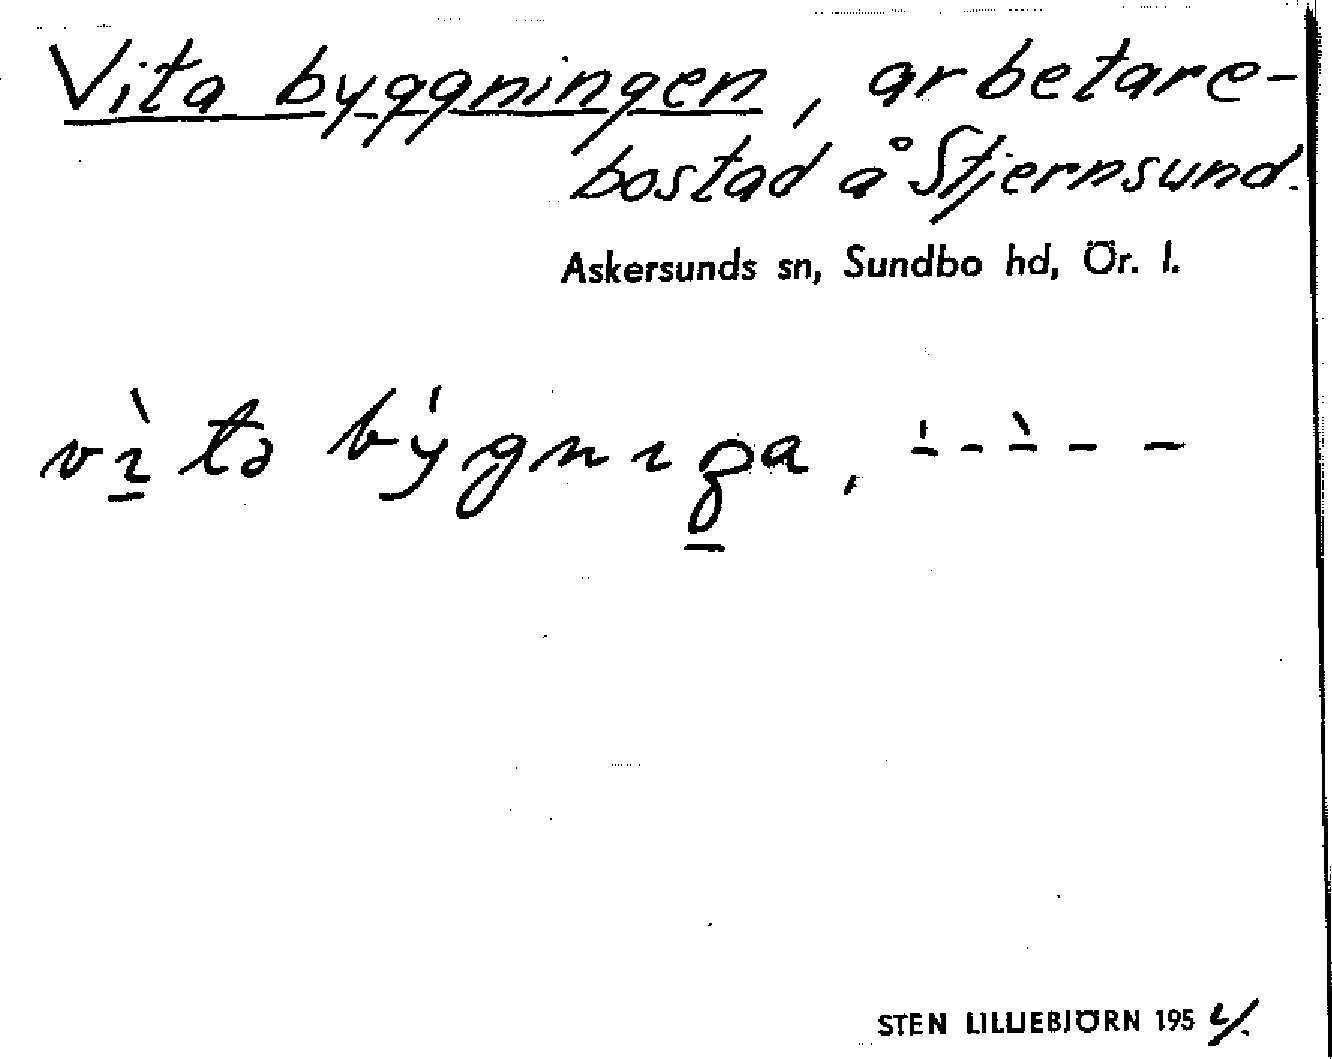 Vita byggningen, arbetare-
bostad å Stjernsund.
Askersunds sn, Sundbo hd, Ör. l.
STEN LILLIEBJÖRN 195